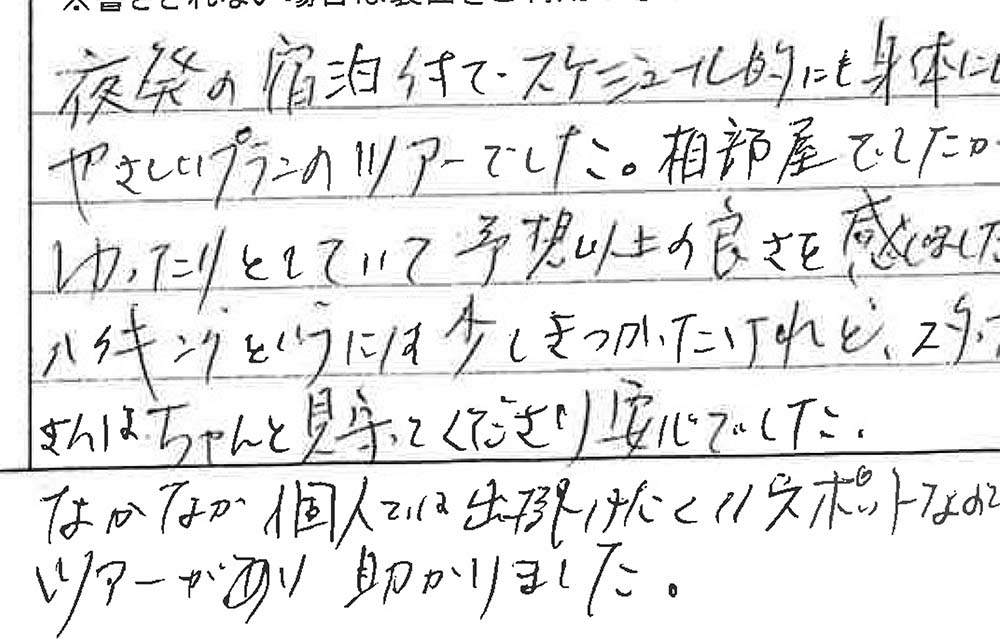 夜発の宿泊付で、スケジュール的にも身体にも
やさしいプランのツアーでした。相部屋でしたが
ゆったりとしていて予想以上の良さを感じました
ハイキングというには少しきつかったけれど、スタッフ
さんはちゃんと見守ってくださり安心でした。
なかなか個人では出掛けにくいスポットなので
ツアーがあり助かりました。